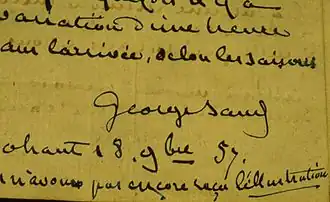 variation d'une heure
dans l'arrivée, selon les saisons
George Sand
nohant 18. 9bre 57.
n'avons pas encore reçu l'illustration